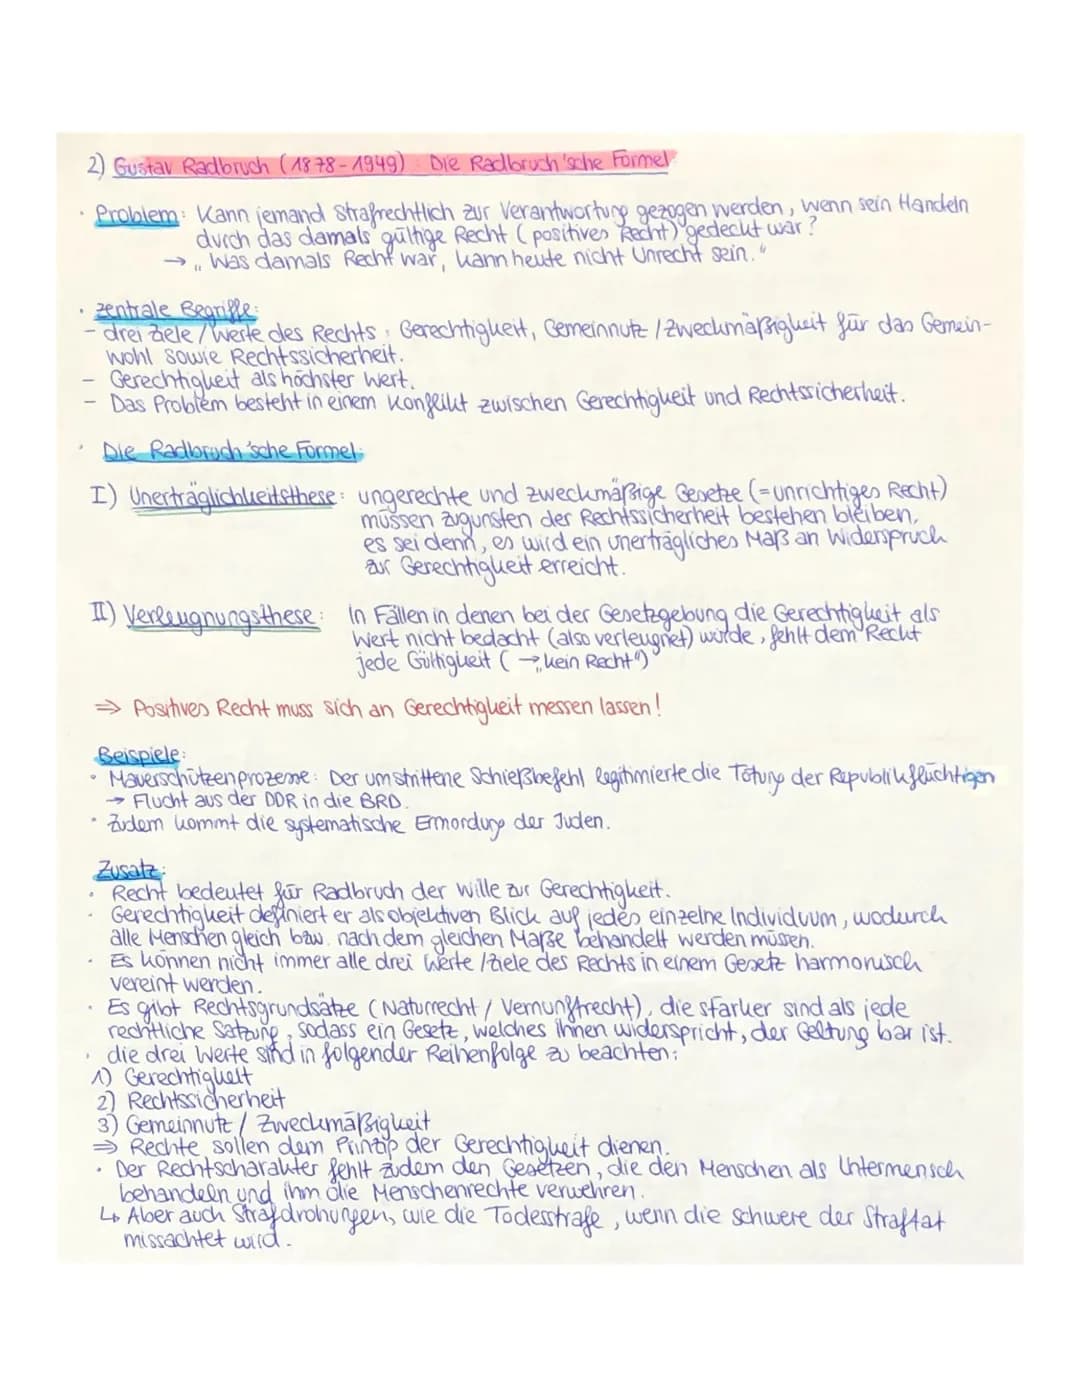 2) Gustav Radbruch (1878-1949) Die Radbruch'sche Formel
· Problem: Kann jemand strafrechtlich zur Verantwortung gezogen werden, wenn sein Handeln
durch das damals gültige Recht (positives Recht) gedeckt war?
→ „Was damals Recht war, kann heute nicht Unrecht sein."
· zentrale Begriffe:
- drei Ziele / Werte des Rechts: Gerechtigkeit, Gemeinnutz / Zweckmäßigkeit für das Gemein-
wohl sowie Rechtssicherheit.
- Gerechtigkeit als höchster Wert.
- Das Problem besteht in einem Konflikt zwischen Gerechtigkeit und Rechtssicherheit.
· Die Radbruch'sche Formel:
I) Unerträglichkeitsthese: ungerechte und zweckmäßige Gesetze (=unrichtiges Recht)
müssen zugunsten der Rechtssicherheit bestehen bleiben,
es sei denn, es wird ein unerträgliches Maß an Widerspruch
zur Gerechtigkeit erreicht.
II) Verleugnungsthese: In Fällen in denen bei der Gesetzgebung die Gerechtigkeit als
Wert nicht bedacht (also verleugnet) wurde, fehlt dem Recht
jede Gültigkeit (→„kein Recht")
⇒ Positives Recht muss sich an Gerechtigkeit messen lassen!
Beispiele:
· Mauerschützenprozesse: Der umstrittene Schießbefehl legitimierte die Tötung der Republikflüchtigen
→ Flucht aus der DDR in die BRD.
· Zudem kommt die systematische Ermordung der Juden.
Zusatz:
· Recht bedeutet für Radbruch der Wille zur Gerechtigkeit.
· Gerechtigkeit definiert er als objektiven Blick auf jedes einzelne Individuum, wodurch
alle Menschen gleich bzw. nach dem gleichen Maße behandelt werden müssen.
· Es können nicht immer alle drei Werte / Ziele des Rechts in einem Gesetz harmonisch
vereint werden.
· Es gibt Rechtsgrundsätze (Naturrecht / Vernunftrecht), die stärker sind als jede
rechtliche Satzung, sodass ein Gesetz, welches ihnen widerspricht, der Geltung bar ist.
· die drei Werte sind in folgender Reihenfolge zu beachten:
1) Gerechtigkeit
2) Rechtssicherheit
3) Gemeinnutz / Zweckmäßigkeit
⇒ Rechte sollen dem Prinzip der Gerechtigkeit dienen.
· Der Rechtscharakter fehlt zudem den Gesetzen, die den Menschen als Untermensch
behandeln und ihm die Menschenrechte verwehren.
↳ Aber auch Strafdrohungen, wie die Todesstrafe, wenn die schwere der Straftat
missachtet wird.